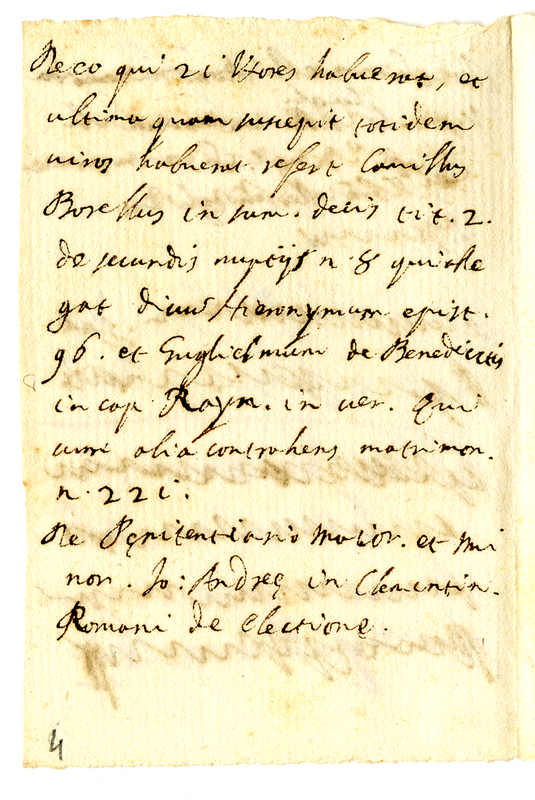 De eo qui 21 Uxores habuerat, et
ultima quam suscepit totidem
viros habuerat refert Camillus
Borellus in sum. decis tit. 2.
de secundis nuptijs n. 8 qui alle
gat divũ Hieronymum epist.
96. et Guglielmum de Benedictis
in cap Rayn. in ver. Qui
cum alia contrahens matrimon.
n. 221.
De Pęnitentiario Maior. et Mi
nor. Jo: Andreę in Clementin.
Romani de Electionę.
4